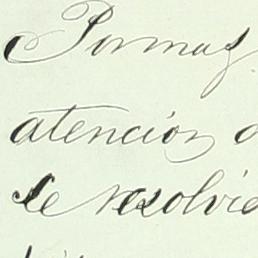 Por mas
atencion
se resolvie